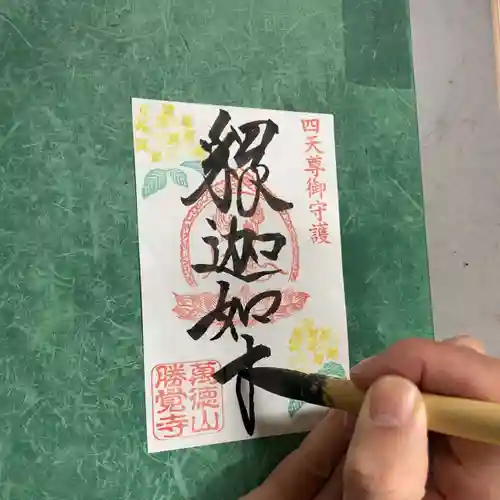 四天尊御守護
釋迦如
萬徳山
勝覚寺